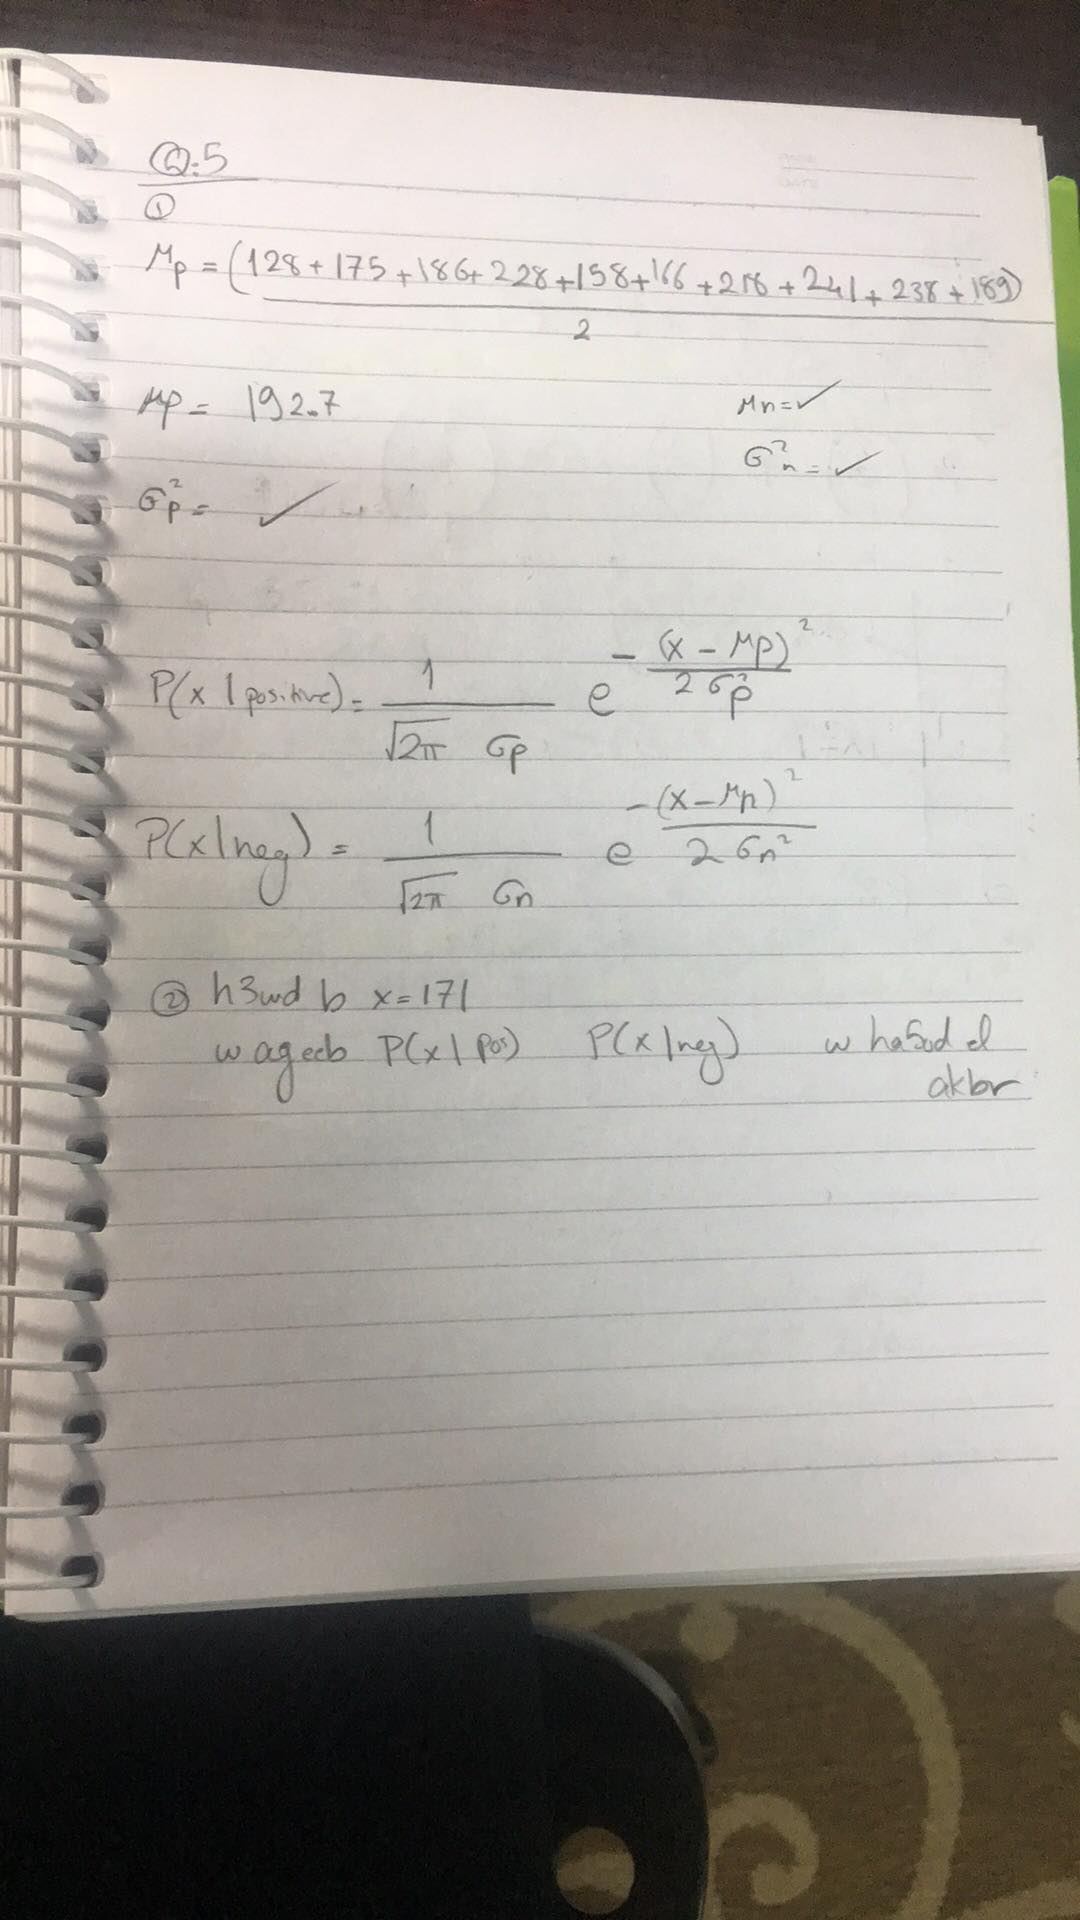 Q:5
①
μp = (128 + 175 + 186 + 228 + 158 + 166 + 218 + 241 + 238 + 189)
2
μp = 192.7
μn = ✓
σ²n = ✓
σ²p = ✓
P(x | positive) = 1 / √2π σp e - (x - μp)² / 2σ²p
P(x | neg) = 1 / √2π σn e -(x - μn)² / 2σn²
② h3wd b x = 171
w ageeb P(x | pos) P(x | neg) w ha5ud el
akbr